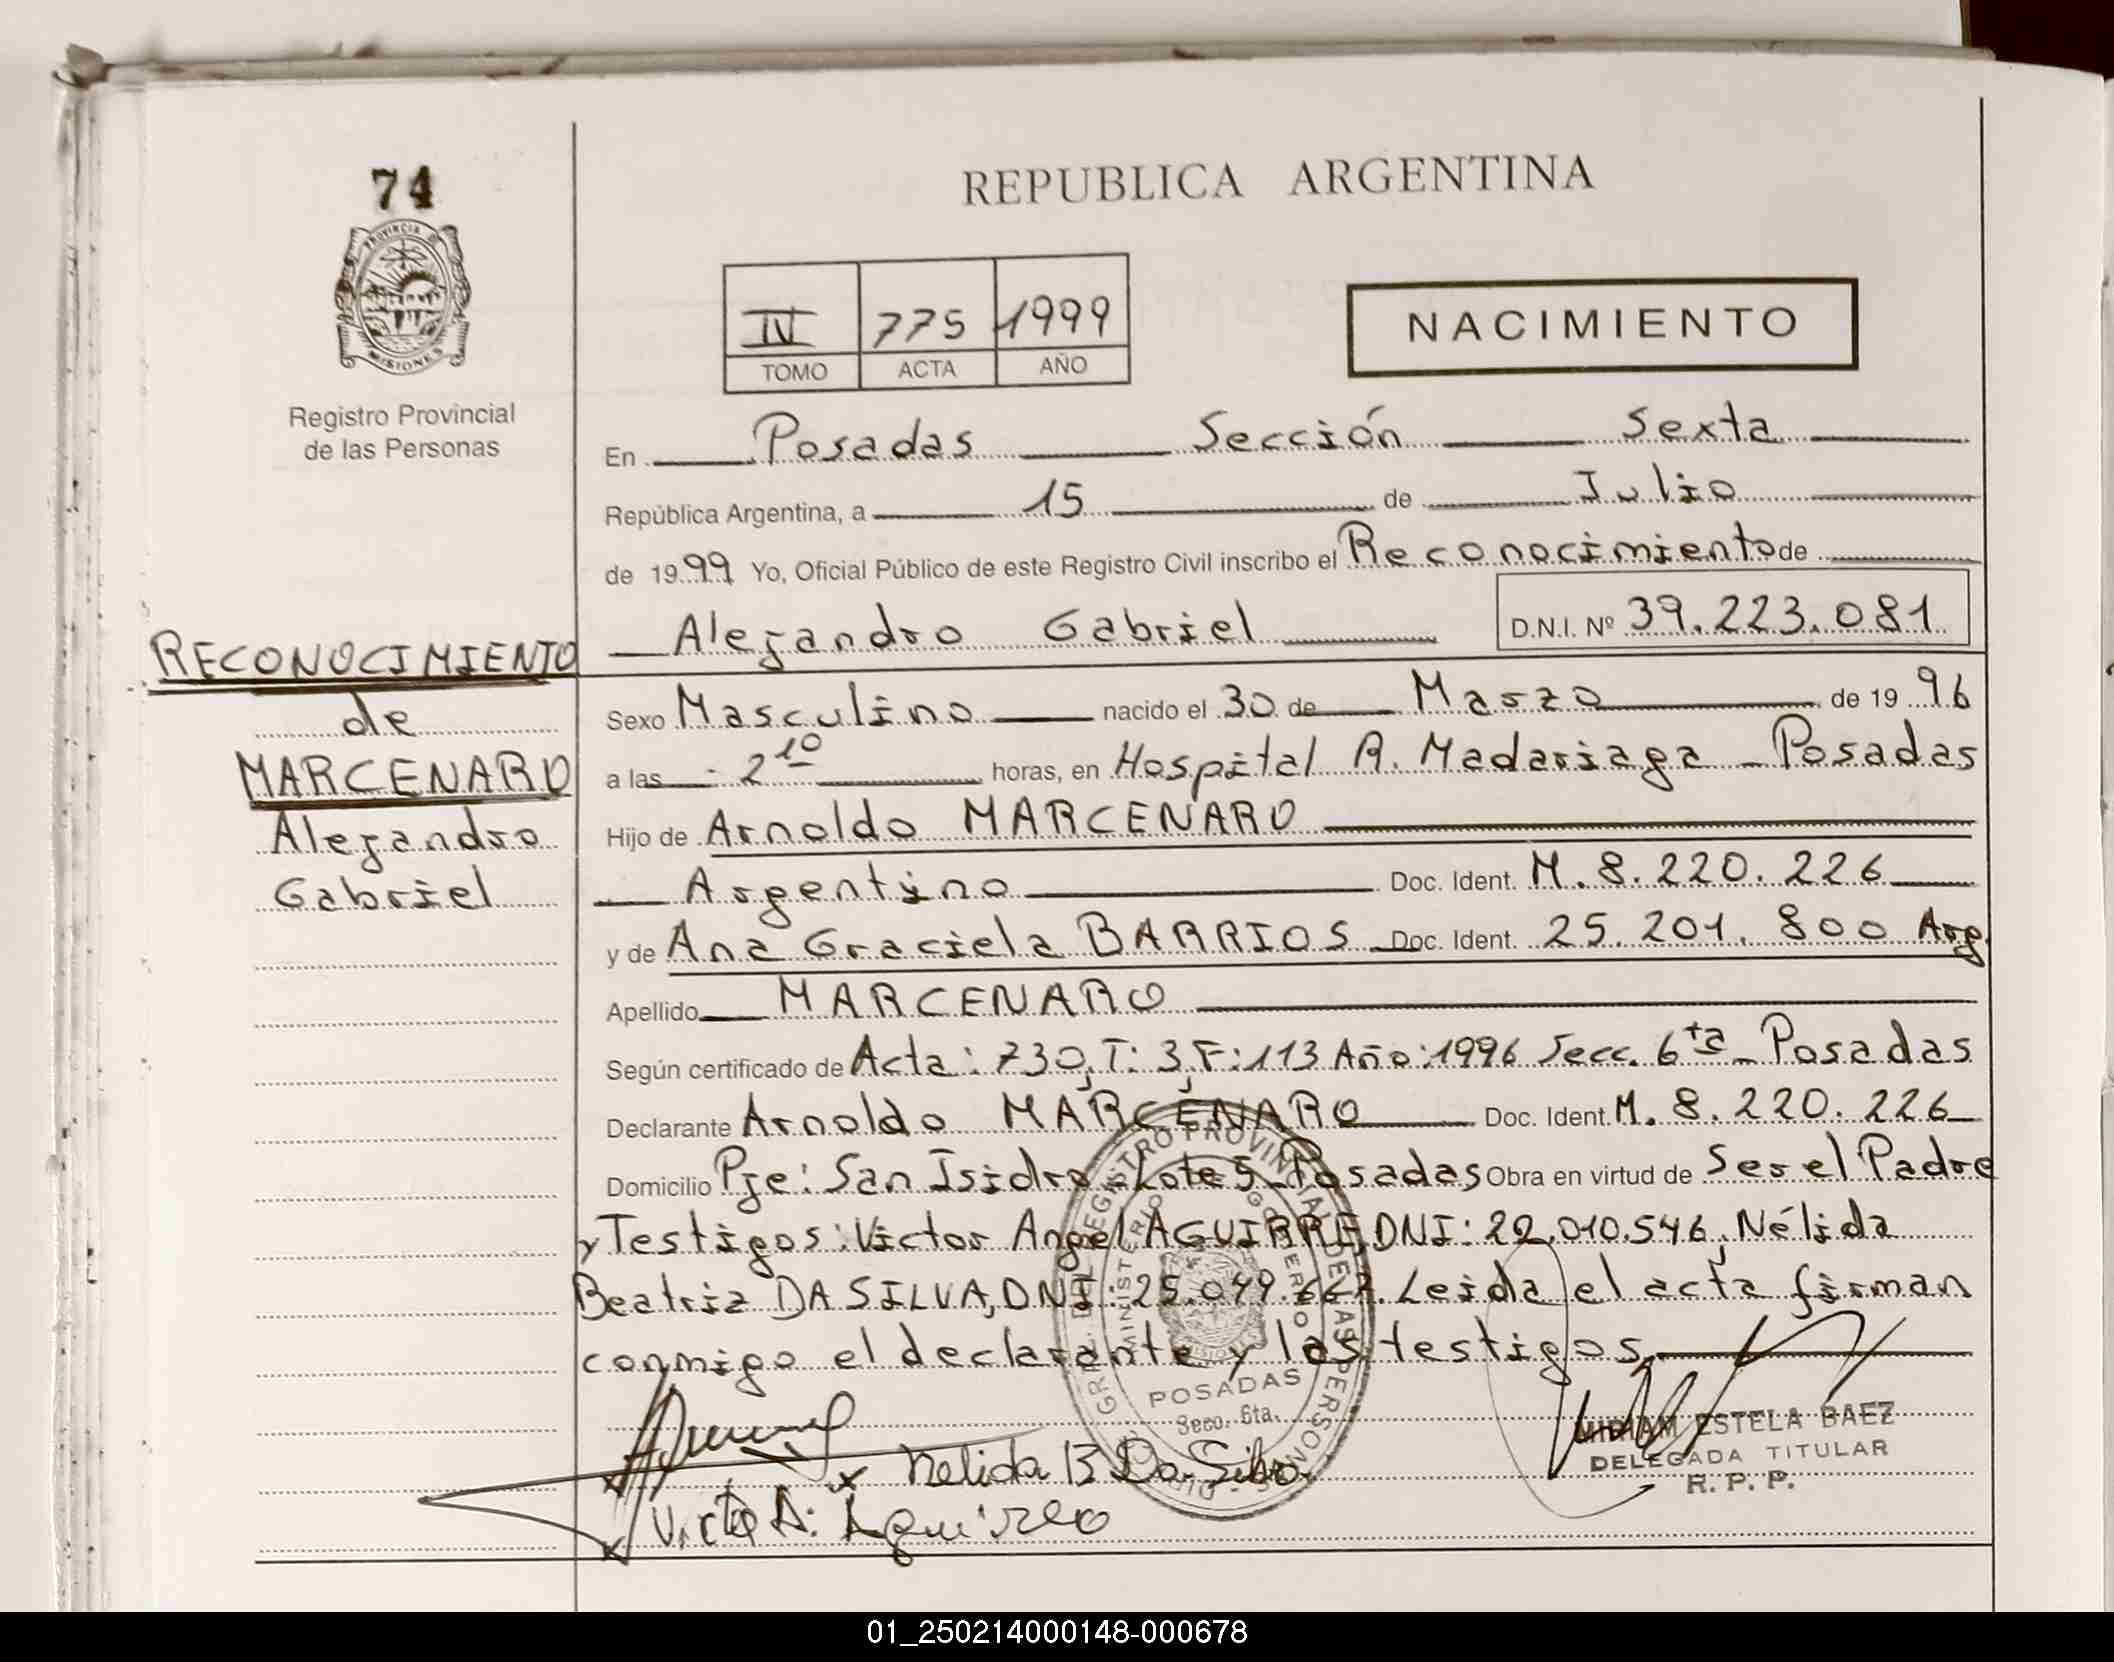 74
PROVINCIA DE
MISIONES
Registro Provincial
de las Personas
REPUBLICA ARGENTINA
IV 775 1999
TOMO ACTA AÑO
NACIMIENTO
En Posadas Sección Sexta
República Argentina, a 15 de Julio
de 1999 Yo, Oficial Público de este Registro Civil inscribo el Reconocimiento de
Alejandro Gabriel D.N.I. Nº 39.223.081
RECONOCIMIENTO
de
MARCENARO
Alejandro
Gabriel
Sexo Masculino nacido el 30 de Marzo de 1996
a las 2 10 horas, en Hospital R. Madariaga - Posadas
Hijo de Arnoldo MARCENARO
Argentino Doc. Ident. M. 8.220.226
y de Ana Graciela BARRIOS Doc. Ident. 25.201.800 Arg.
Apellido MARCENARO
Según certificado de Acta: 730, T: 3, F: 113 Año: 1996 Secc. 6ta - Posadas
Declarante Arnoldo MARCENARO Doc. Ident. M. 8.220.226
Domicilio Pje: San Isidro - Lote 5 - Posadas Obra en virtud de Ser el Padre
y Testigos: Victor Angel AGUIRRE, DNI: 22.010.546, Nélida
Beatriz DA SILVA, DNI: Leida el acta firman
conmigo el declarante y los testigos
DIR. GRAL. DEL REGISTRO PROVINCIAL DE LAS PERSONAS
MINISTERIO GOBIERNO
POSADAS
Secc. 6ta.
MIRIAM ESTELA BAEZ
DELEGADA TITULAR
R. P. P.
x Nelida B Da Silva
x Victor A: Aguirre
01_250214000148-000678